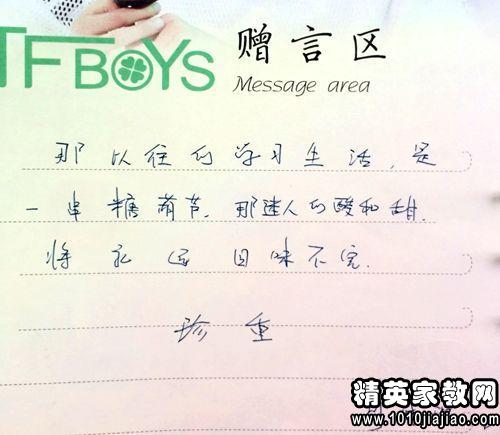 TFBOYS
赠言区
Message area
那以往的学习生活,是
一串糖葫芦,那迷人的酸和甜,
将永远回味不完.
珍重
精英家教网
www.1010jiajiao.com